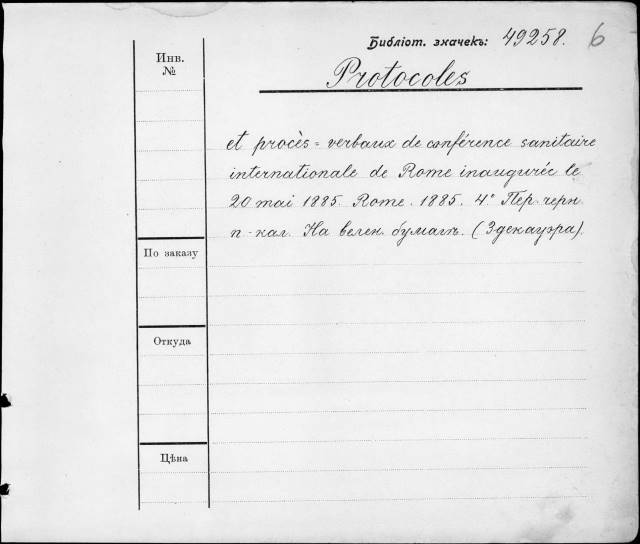 Библіот. значекъ: 49258. 6
Инв.
№
Protocoles
et procès=verbaux de conférence sanitaire
internationale de Rome inaugurée le
20 mai 1885. Rome. 1885. 4° Пер. черн
п-кал. На велен. бумагѣ. (Здекауэра).
По заказу
Откуда
Цѣна